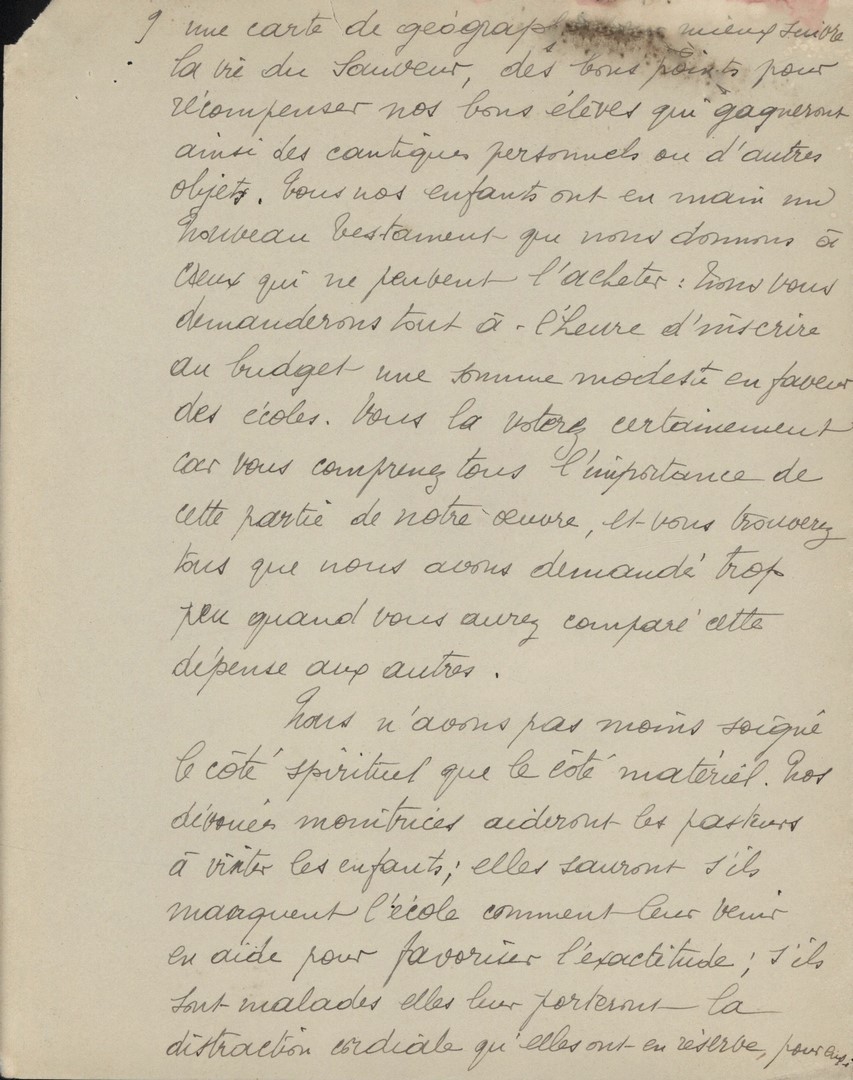 9 une carte de géograp mieux suivre
la vie du Sauveur, des bons points pour
récompenser nos bons élèves qui gagneront
ainsi des cantiques personnels ou d'autres
objets. Tous nos enfants ont en main un
Nouveau Testament que nous donnons à
ceux qui ne peuvent l'acheter : Nous vous
demanderons tout à - l'heure d'inscrire
au budget une somme modeste en faveur
des écoles. Vous la voterez certainement
car vous comprenez tous l'importance de
cette partie de notre œuvre, et vous trouverez
tous que nous avons demandé trop
peu quand vous aurez comparé cette
dépense aux autres.
Nous n'avons pas moins soigné
le côté spirituel que le côté matériel. Nos
dévouées monitrices aideront les pasteurs
à visiter les enfants; elles sauront s'ils
manquent l'école comment leur venir
en aide pour favoriser l'exactitude; s'ils
sont malades elles leur porteront la
distraction cordiale qu'elles ont en réserve, pour